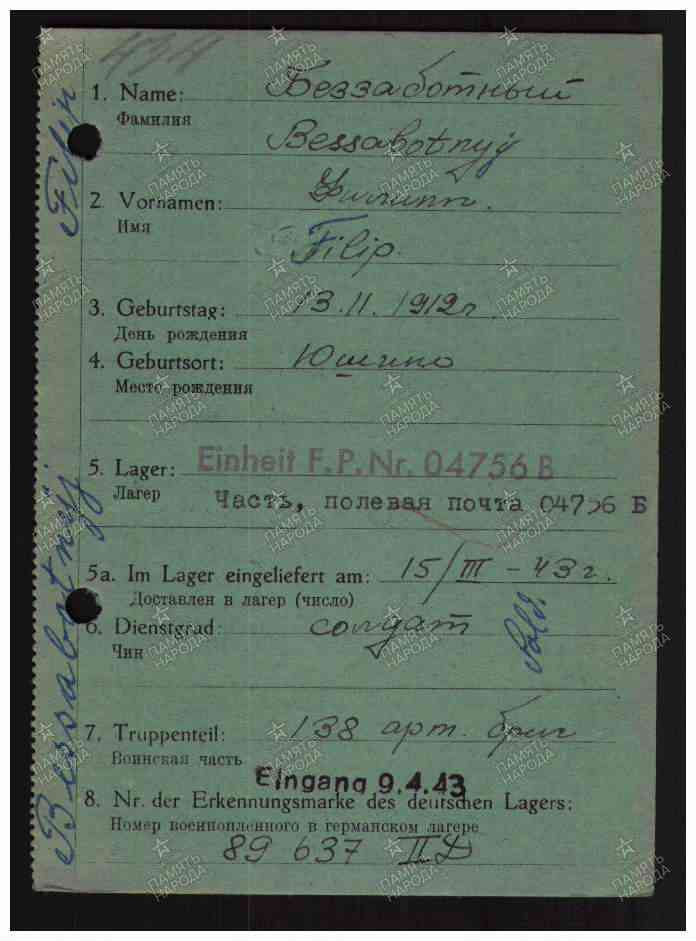 1. Name: Беззаботный
Фамилия
Bessabotnyj
2. Vornamen: Филипп.
Имя
Filip.
3. Geburtstag: 13.11.1912г.
День рождения
4. Geburtsort: Юшино
Место рождения
5. Lager: Einheit F.P.Nr. 04756 B
Лагер
Часть, полевая почта 04756 Б
5a. Im Lager eingeliefert am: 15/III-43г.
Доставлен в лагер (число)
6. Dienstgrad: солдат
Sold.
Чин
7. Truppenteil: 138 арт. бриг
Воинская часть
Eingang 9.4.43
8. Nr. der Erkennungsmarke des deutschen Lagers:
Номер военнопленного в германском лагере
89 637 II Д
Bessabotnyj Filip
ПАМЯТЬ НАРОДА